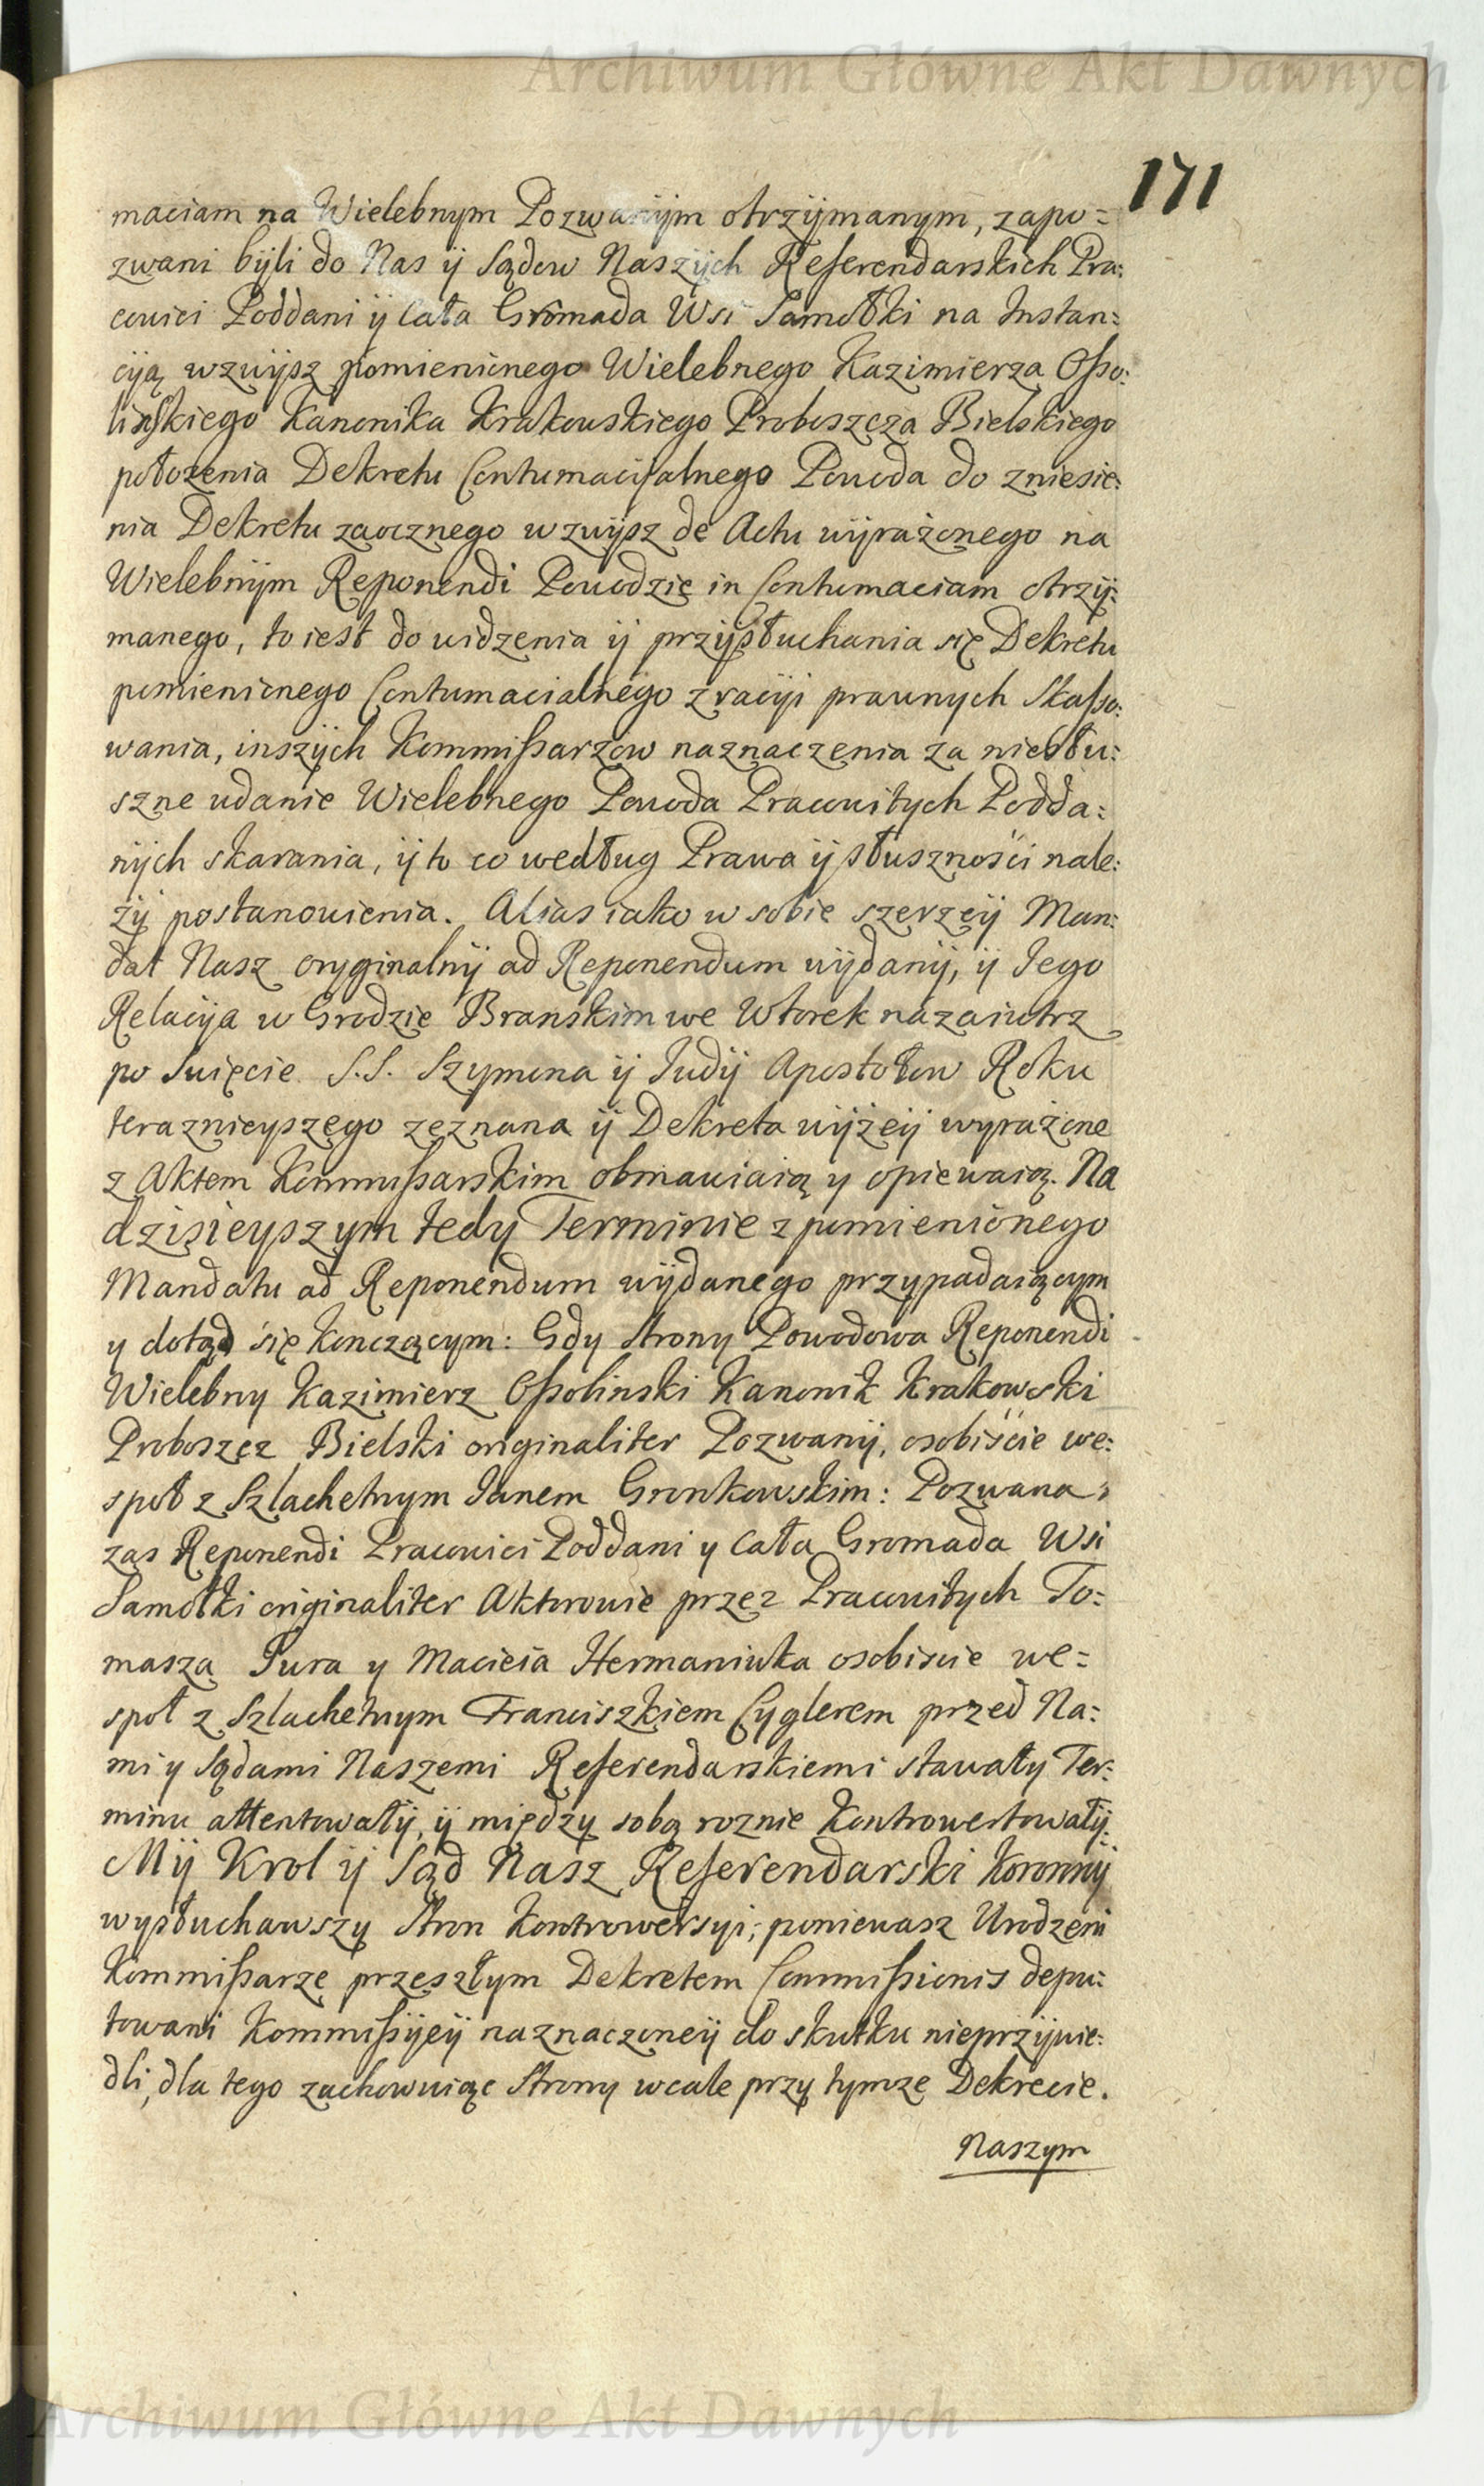 Archiwum Główne Akt Dawnych
171
maciam na Wielebnym Pozwanÿm otrzÿmanym, zapo=
zwani bÿli do Nas ÿ Sądow Naszÿch Referendarskich Pra:
cowici Poddani ÿ Cała Gromada Wsi Samołki na Instan:
cÿą wzwÿsz pomienionego Wielebnego Kazimierza Osso:
lińskiego Kanonika Krakowskiego Proboszcza Bielskiego
położenia Dekretu Contumacÿalnego Powoda do zniesie:
nia Dekretu zaocznego wzwÿsz de Actu wÿrażonego na
Wielebnÿm Reponendi Powodzie in Contumaciam otrzÿ:
manego, to iest do widzenia ÿ przÿsłuchania się Dekretu
pomienionego Contumacialnego z racÿi prawnych Skasso:
wania, inszÿch Kommissarzow naznaczenia za niesłu:
szne udanie Wielebnego Powoda Pracowitych Podda:
nÿch skarania, ÿ to co według Prawa ÿ słusznośći nale:
zÿ postanowienia. Alias iako w sobie szerzeÿ Man:
dat Nasz oryginalnÿ ad Reponendum wÿdanÿ, ÿ Iego
Relacÿa w Grodzie Branskim we Wtorek nazaiutrz
po Swięcie S.S. Szymona ÿ Iudÿ Apostołow Roku
teraznieyszego zeznana ÿ Dekreta wÿżeÿ wyrażone
z Aktem Kommissarskim obmawiaią y opiewaią. Na
dzisieyszym tedy Terminie z pomienionego
Mandatu ad Reponendum wÿdanego przypadaiącym
y dotąd się konczącym: Gdy strony Powodowa Reponendi
Wielebny Kazimierz Ossolinski Kanonik Krakowski
Proboszcz Bielski originaliter Pozwanÿ, osobiśćie we:
społ z Szlachetnym Ianem Gronkowskim: Pozwana
zas Reponendi Pracowici Poddani y Cała Gromada Wsi
Samołki originaliter Aktorowie przez Pracowitych To:
masza Iura y Macieia Hermaniuka osobiscie we=
społ z Szlachetnym Franciszkiem Cyglerem przed Na:
mi y Sądami Naszemi Referendarskiemi stawały Ter:
minu attentowałÿ, ÿ między sobą roznie kontrowertowałÿ.
Mÿ Krol ÿ Sąd Nasz Referendarski Koronnÿ
wysłuchawszy Stron Kontrowersyi; poniewasz Urodzeni
Kommissarze przeszłym Dekretem Commissionis depu:
towani Kommissÿeÿ naznaczoneÿ do skutku nieprzÿwie:
dli, dla tego zachowuiąc Strony wcale przy tymze Dekrecie.
Naszym
Archiwum Główne Akt Dawnych